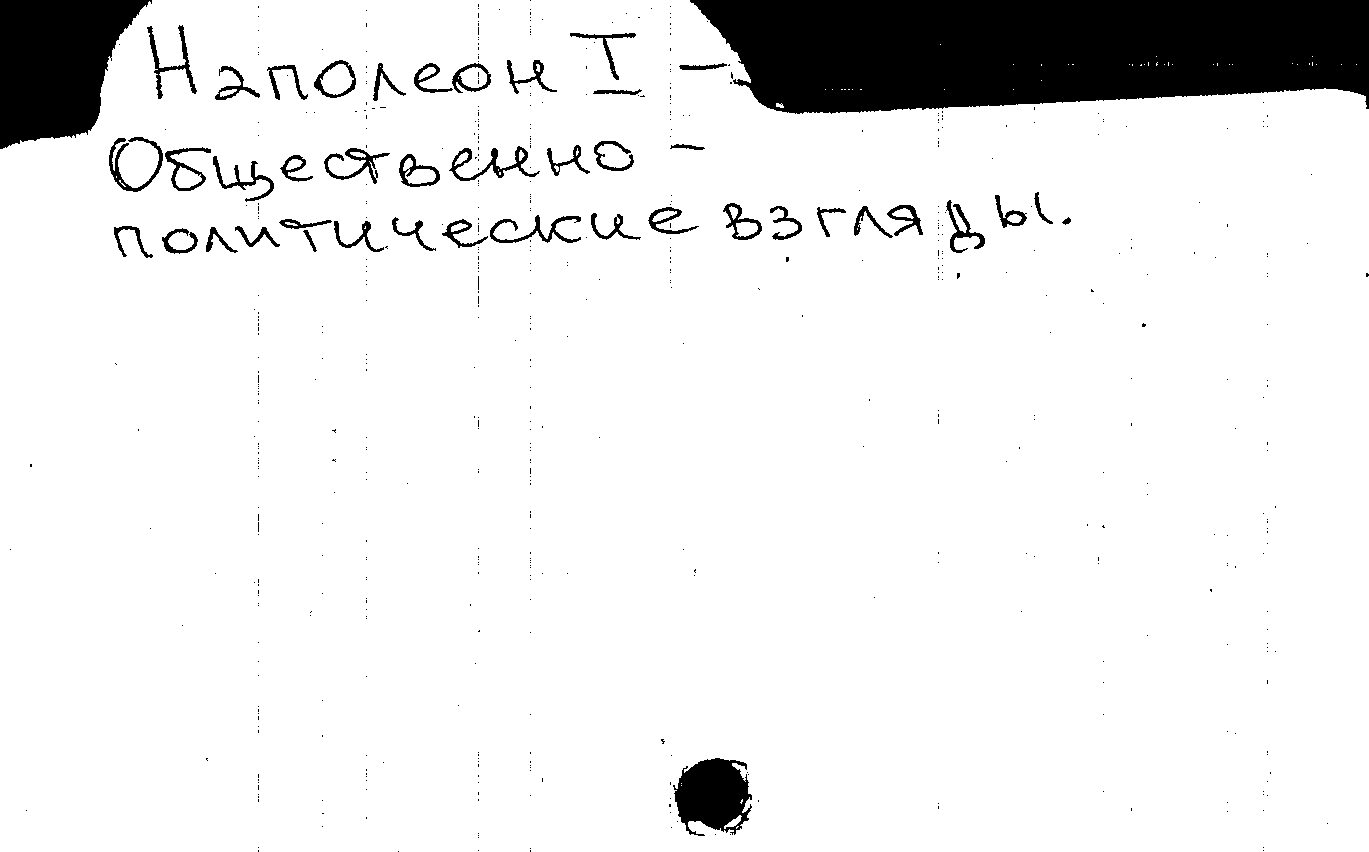 Наполеон I –
Общественно –
политические взгляды.